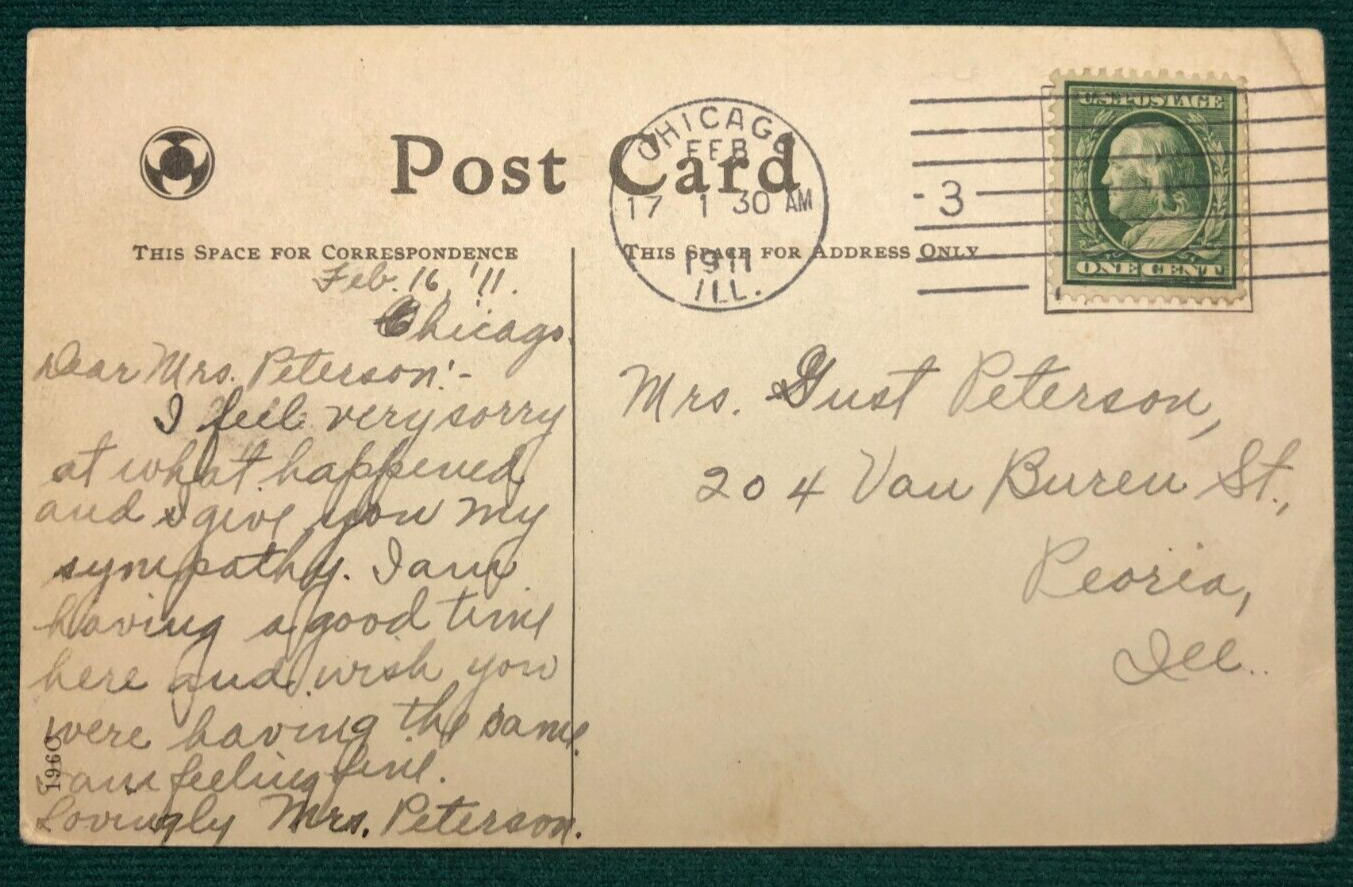 Post Card
CHICAGO
FEB
17 1 30 AM
1911
ILL.
3
U.S. POSTAGE
ONE CENT
THIS SPACE FOR CORRESPONDENCE
THIS SPACE FOR ADDRESS ONLY
Feb. 16, '11.
Chicago.
Dear Mrs. Peterson:-
I feel very sorry
at what happened
and I give you my
sympathy. I am
having a good time
here and wish you
were having the same.
I am feeling fine.
Lovingly Mrs. Peterson.
196C
Mrs. Gust Peterson,
204 Van Buren St.,
Peoria,
Ill.